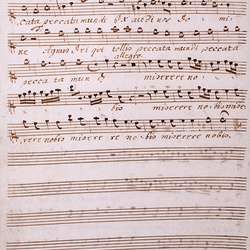 cata peccata mundi ex audi nos Do: mi:
ne Agnus Dei qui tollis peccata mundi peccata
allegro.
pecca ta mun di miserere no:
bis miserere nobis mise
rere nobis miserere no bis miserere nobis.